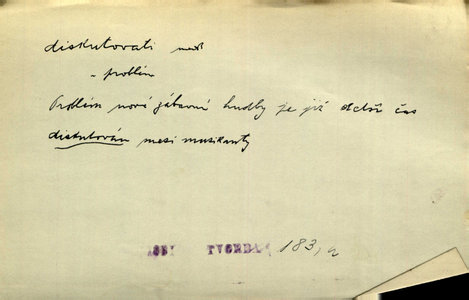 diskutovati ned.
~ problém
Problém nové zábavné hudby je již delší čas
diskutován mezi muzikanty
TVORBA 183,